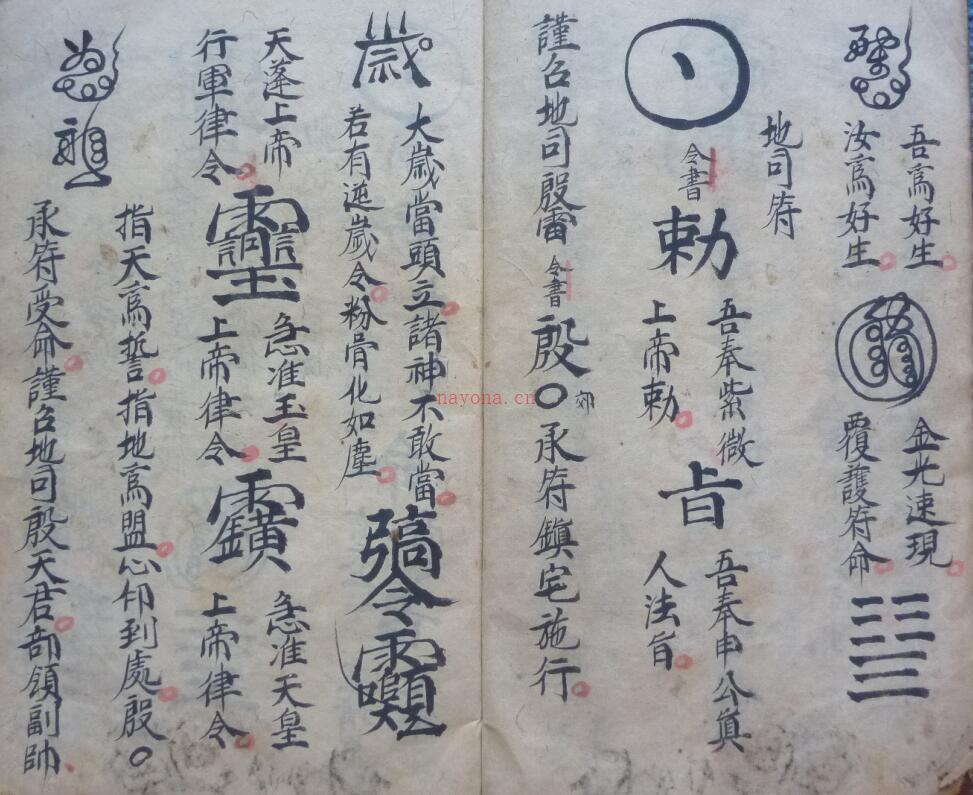 吾為好生
汝為好生
金光速現
覆護符命
地司符
令書
勅
吾奉紫微
上帝勅
旨
吾奉申公真
人法旨
謹召地司殷雷
令書
殷〇
郊
承符鎮宅施行
歲
大歲當頭立諸神不敢當
若有逆歲令粉骨化如塵
令
天蓬上帝
行軍律令
急准玉皇
上帝律令
急准天皇
上帝律令
指天為誓指地為盟心印到處殷〇
承符受命謹召地司殷天君部領副帥
nayona.cn